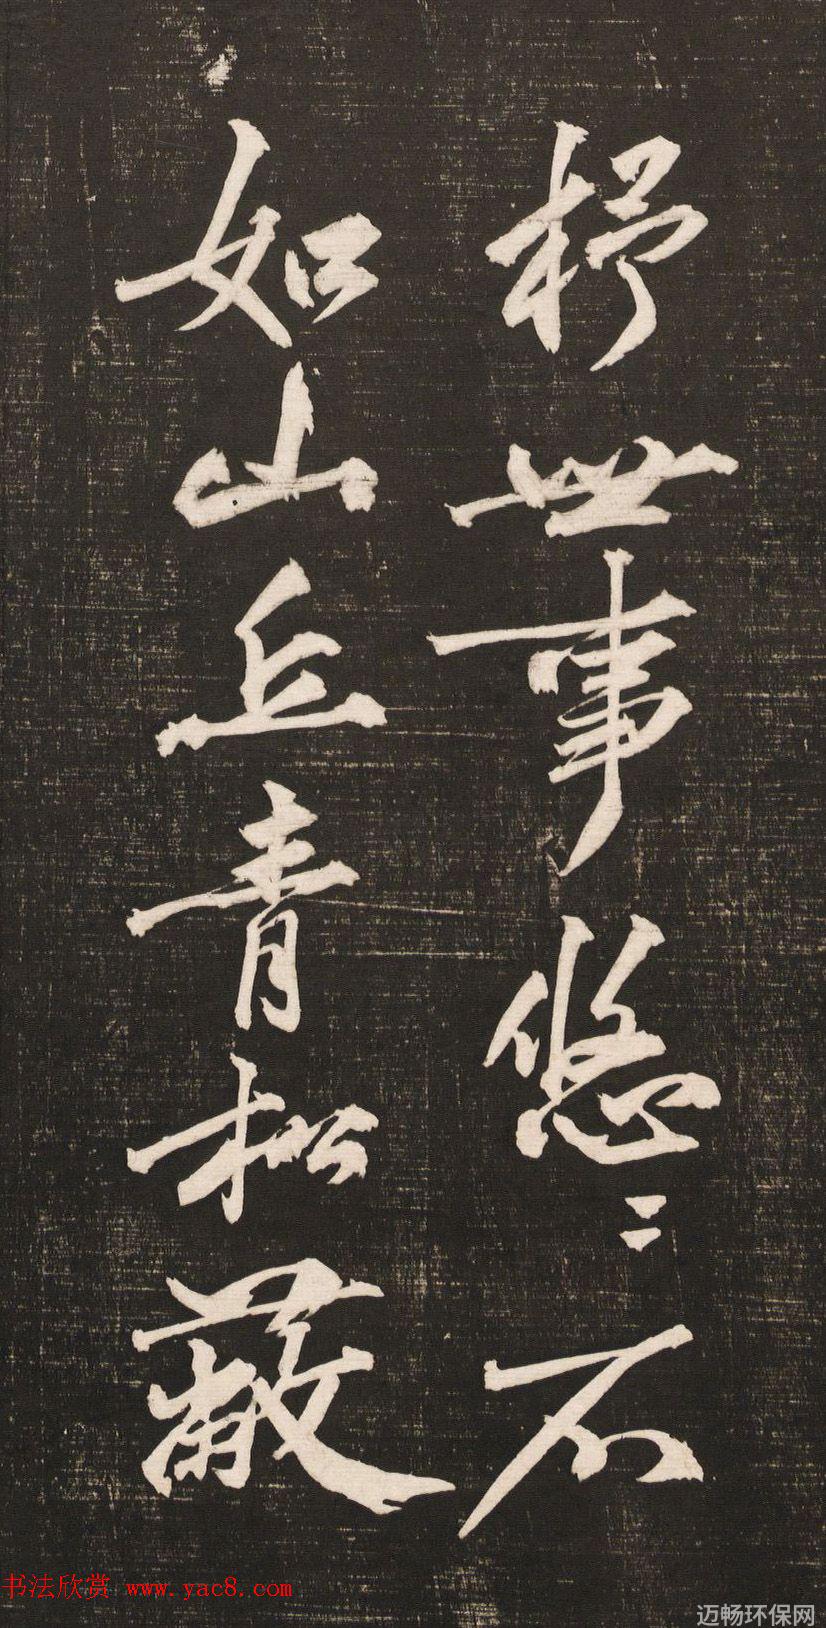 杼世事悠〻不
如山丘青松蔽
书法欣赏 www.yac8.com
迈畅环保网